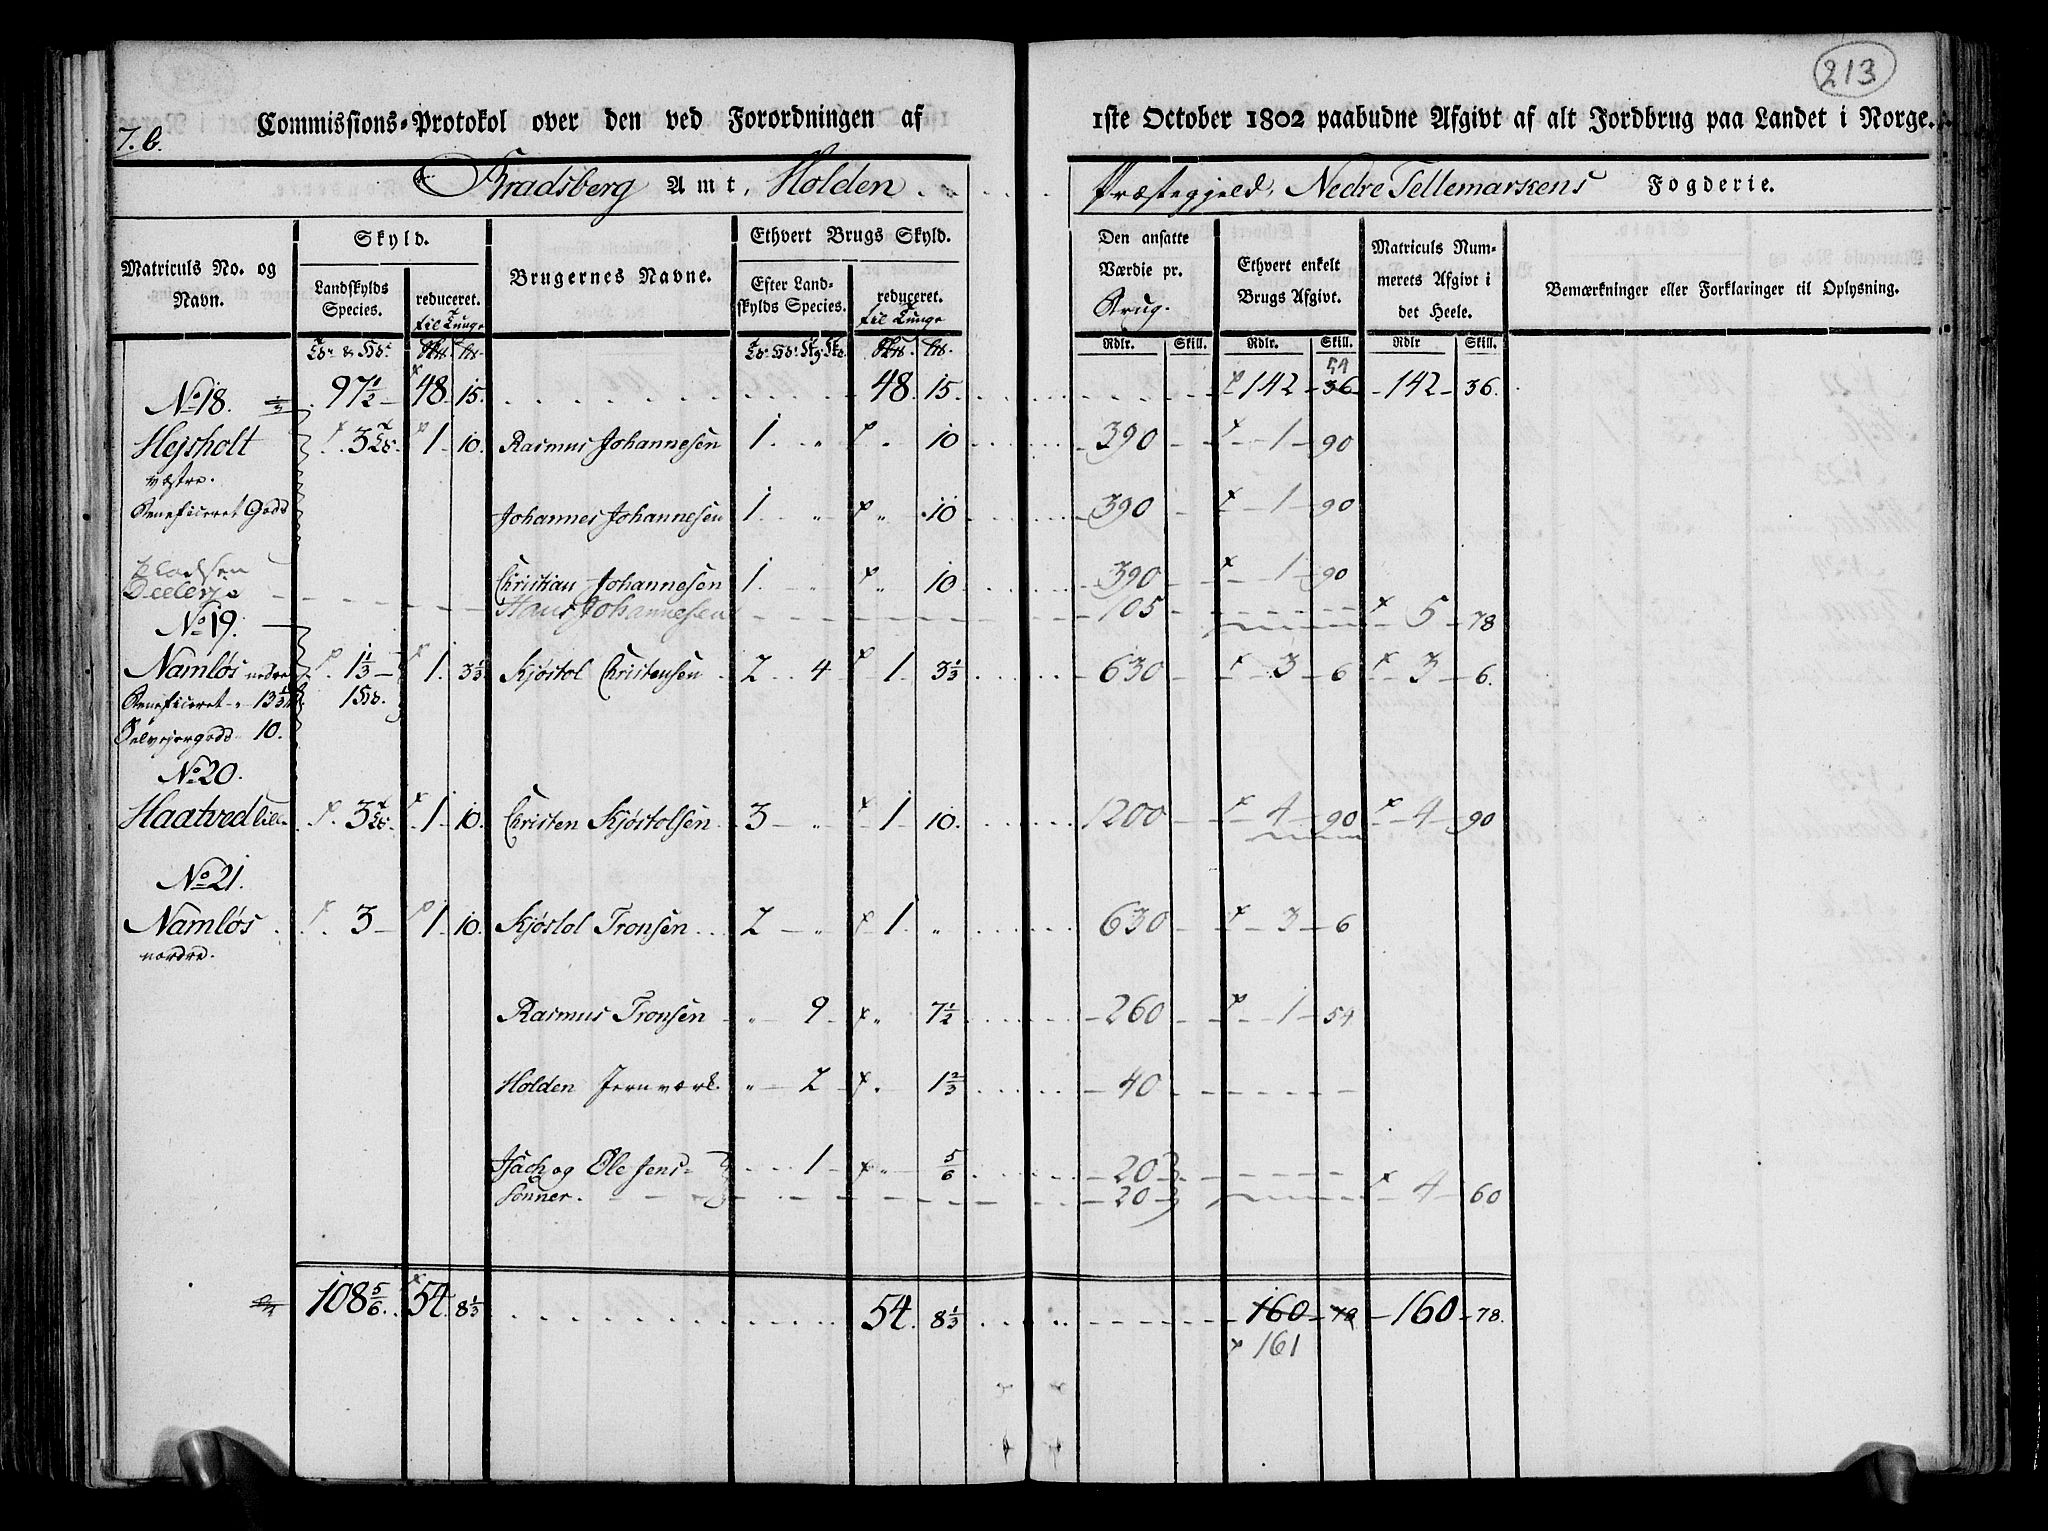 213
7. b. Commissions-Protokol over den ved Forordningen af 1ste October 1802 paabudne Afgivt af alt Jordbrug paa Landet i Norge.
Bradsberg Amt, Holden Præstegjeld, Nedre Tellemarkens Fogderie.
Matriculs No. og Navn.
Skyld.
Landskylds Species.
reduceret. til Tunge
Brugernes Navne.
Ethvert Brugs Skyld.
Efter Landskylds Species.
reduceret. til Tunge
Den ansatte Værdie pr. Brug.
Ethvert enkelt Brugs Afgivt.
Matriculs Nummerets Afgivt i det Heele.
Bemærkninger eller Forklaringer til Oplysning.
Rdlr. Skill. Rdlr. Skill. Rdlr Skill.
54
97 1/2 48 15. 48 15. 142 36 142 36.
No 18.
Hejsholt 3 1 10. Rasmus Johannesen 1 " " 10 390 1 90
væstre.
Beneficeret Gods Johannes Johannesen 1 " " 10 390 1 90
Pladsen Christian Johannesen 1 " 10 390 1 90
Hans Johannesen 105 5 78
No 19.
Namløs nedre 1 1/3 1 3 1/3 Kjøstol Christensen 2 4 1 3 1/3 630 3 6 3 6.
Beneficeret 13 1/3 1
Selvejergods 10.
No 20.
Haatved lille 3 1 10. Christen Kjøstolsen 3 " 1 10. 1200 4 90 4 90
No 21.
Namløs 3 1 10. Kjøstol Tronsen 2 " 1 " 630 3 6
nordre.
Rasmus Tronsen " 9 " 7 1/2 260 1 54
Holden Jernværk " 2 " 1 2/3 40
Isach og Ole Jens- 1 " 5/6 20
Sønner. 20 4 60
108 5/6 54 8 1/3 54. 8 1/3 160 78 160 78.
161